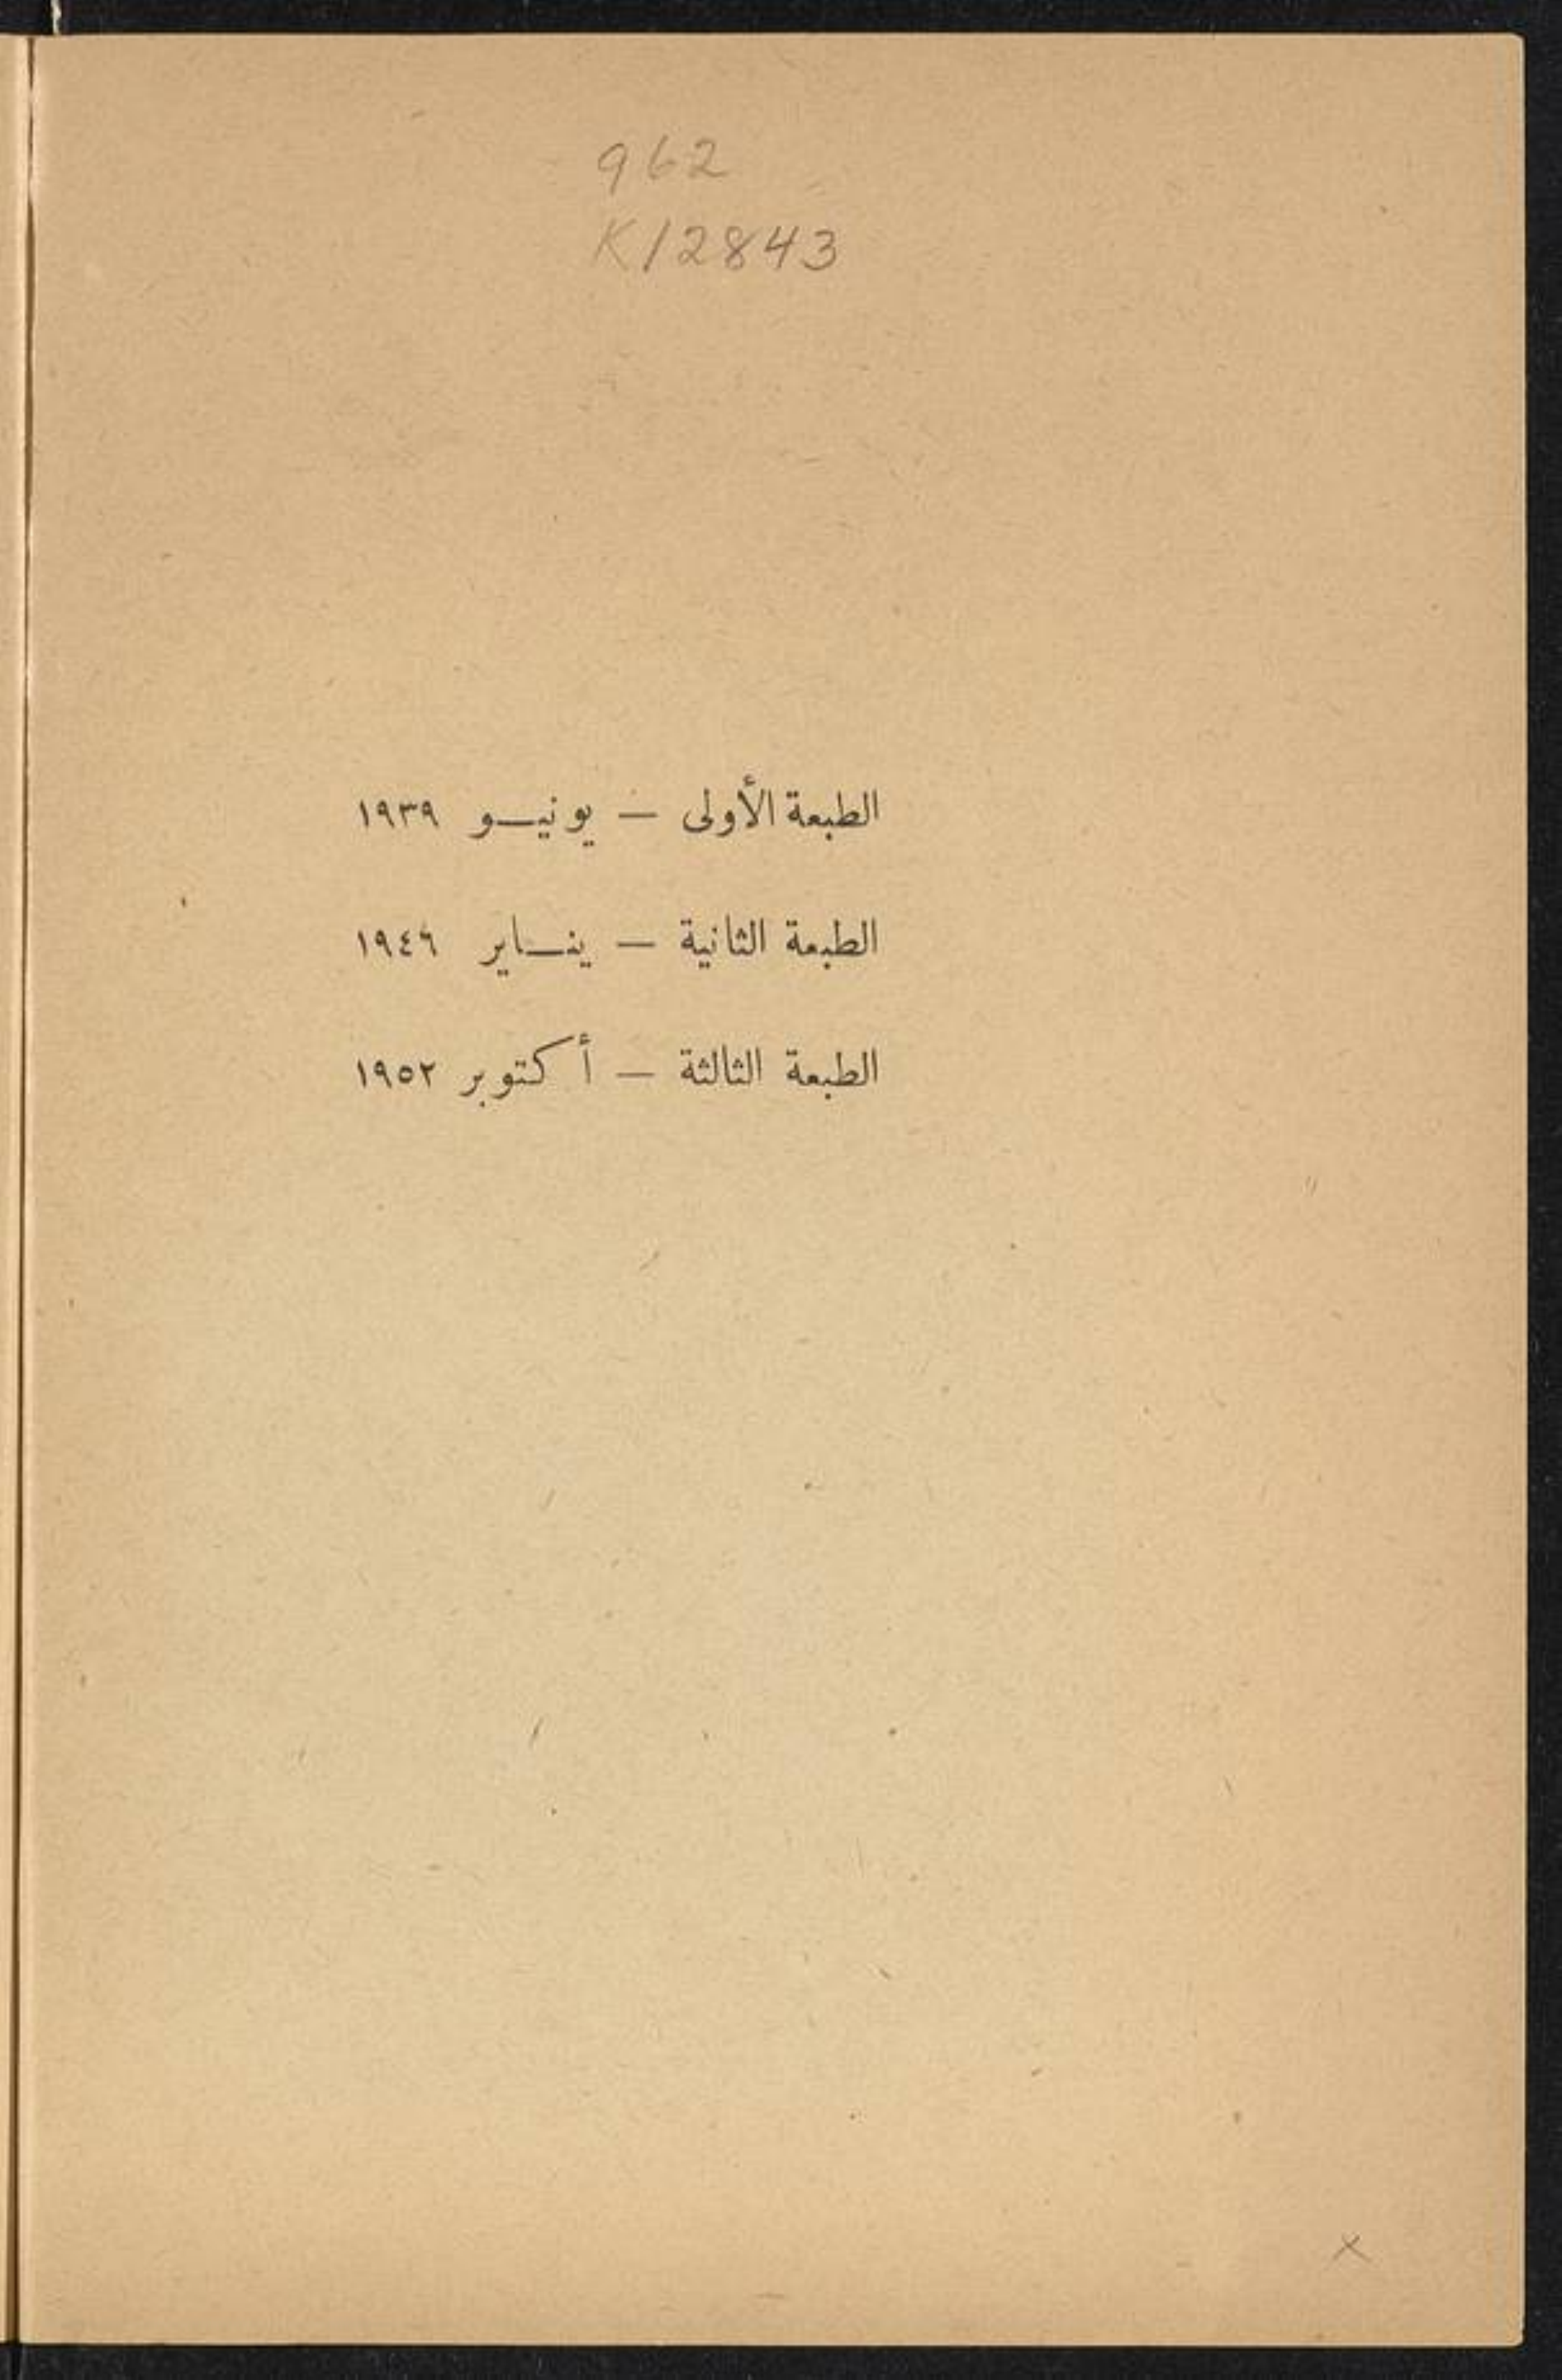 962
K12843
الطبعة الأولى — يونيو ١٩٣٩
الطبعة الثانية — يناير ١٩٤٦
الطبعة الثالثة — أكتوبر ١٩٥٢